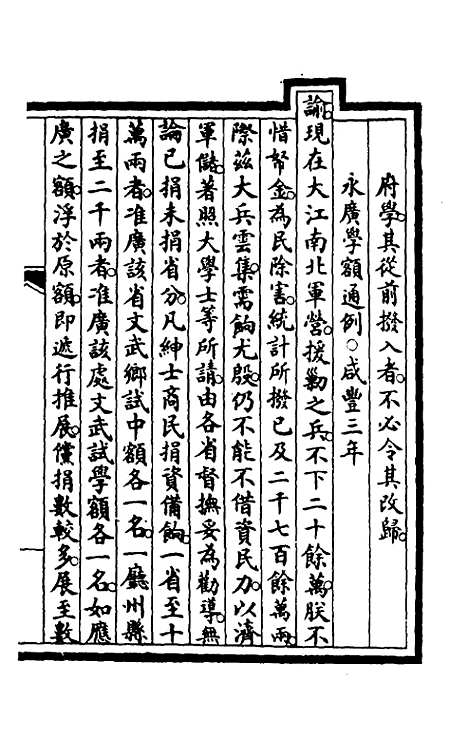 府學。其從前撥入者。不必令其改歸。
永廣學額通例○咸豐三年
諭。現在大江南北軍營。援勦之兵。不下二十餘萬。朕不
惜帑金。為民除害。統計所撥已及二千七百餘萬兩。
際茲大兵雲集。需餉尤殷。仍不能不借資民力。以濟
軍儲。著照大學士等所請。由各省督撫妥為勸導。無
論已捐未捐省分。凡紳士商民捐資備餉。一省至十
萬兩者。准廣該省文武鄉試中額各一名。一廳州縣
捐至二千兩者。准廣該處文武試學額各一名。如應
廣之額。浮於原額。即遞行推展。儻捐數較多。展至數